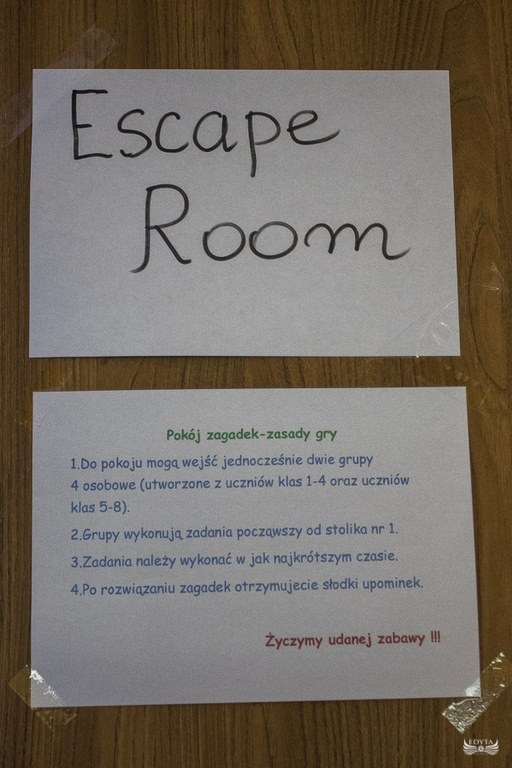 Escape
Room
Pokój zagadek-zasady gry
1.Do pokoju mogą wejść jednocześnie dwie grupy
4 osobowe (utworzone z uczniów klas 1-4 oraz uczniów
klas 5-8).
2.Grupy wykonują zadania począwszy od stolika nr 1.
3.Zadania należy wykonać w jak najkrótszym czasie.
4.Po rozwiązaniu zagadek otrzymujecie słodki upominek.
Życzymy udanej zabawy !!!